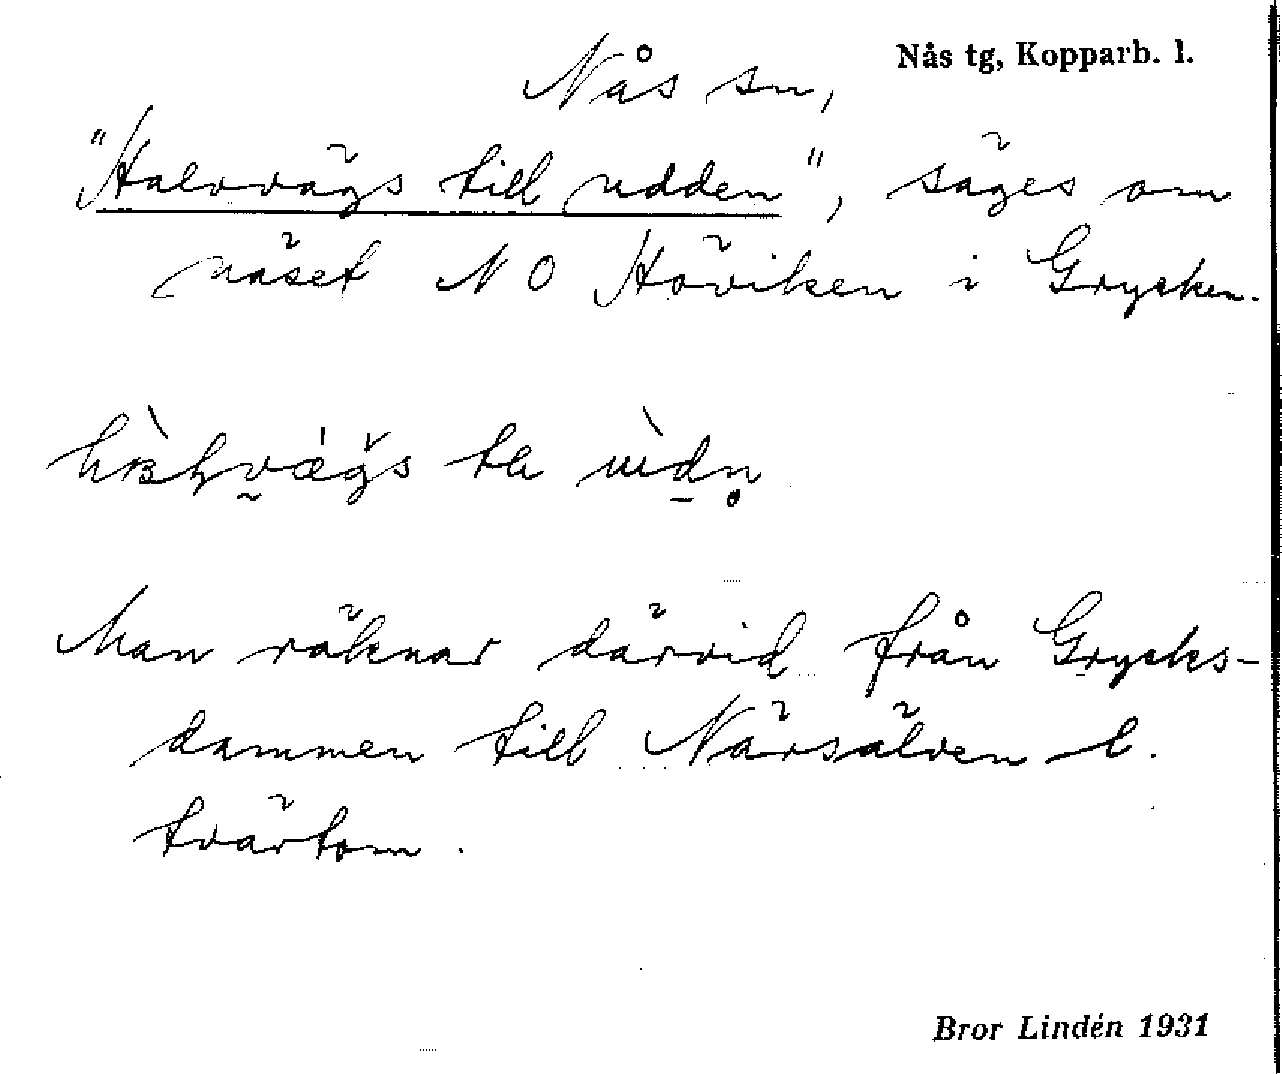 Nås tg, Kopparb. l.
Nås sn,
"Halvvägs till udden", säges om
näset NO Höviken i Grycken.
Man räknar därvid från Grycks-
dammen till Närsälven l.
tvärtom.
Bror Lindén 1931